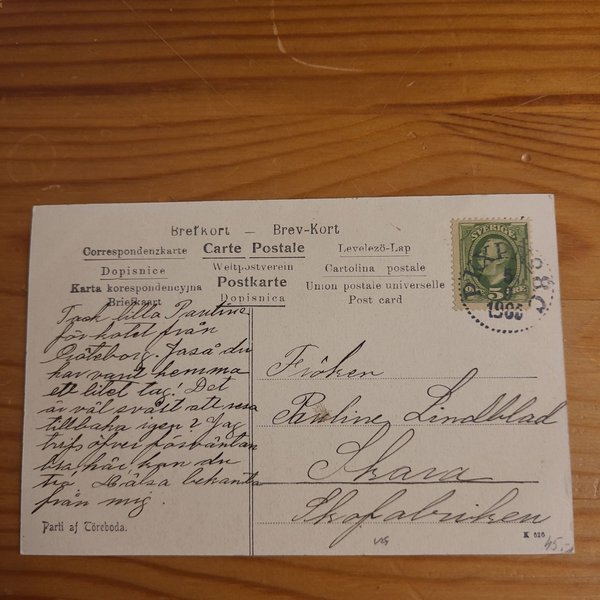 Brefkort — Brev-Kort
Correspondenzkarte Carte Postale Levelezö-Lap
Dopisnice Weltpostverein Cartolina postale
Karta korespondencyjna Postkarte Union postale universelle
Briefkaart Dopisnica Post card
SVERIGE
5 ÖRE
1906
Tack lilla Pauline
för kortet från
Göteborg. Jaså du
har varit hemma
ett litet tag! Det
är väl svårt att resa
tillbaka igen? Jag
trifs öfver förväntan
bra här, kan du
tro. Hälsa bekanta
från mig.
Fröken
Pauline Lindblad
Skara
Skofabriken
Parti af Töreboda.
K 516
45.-